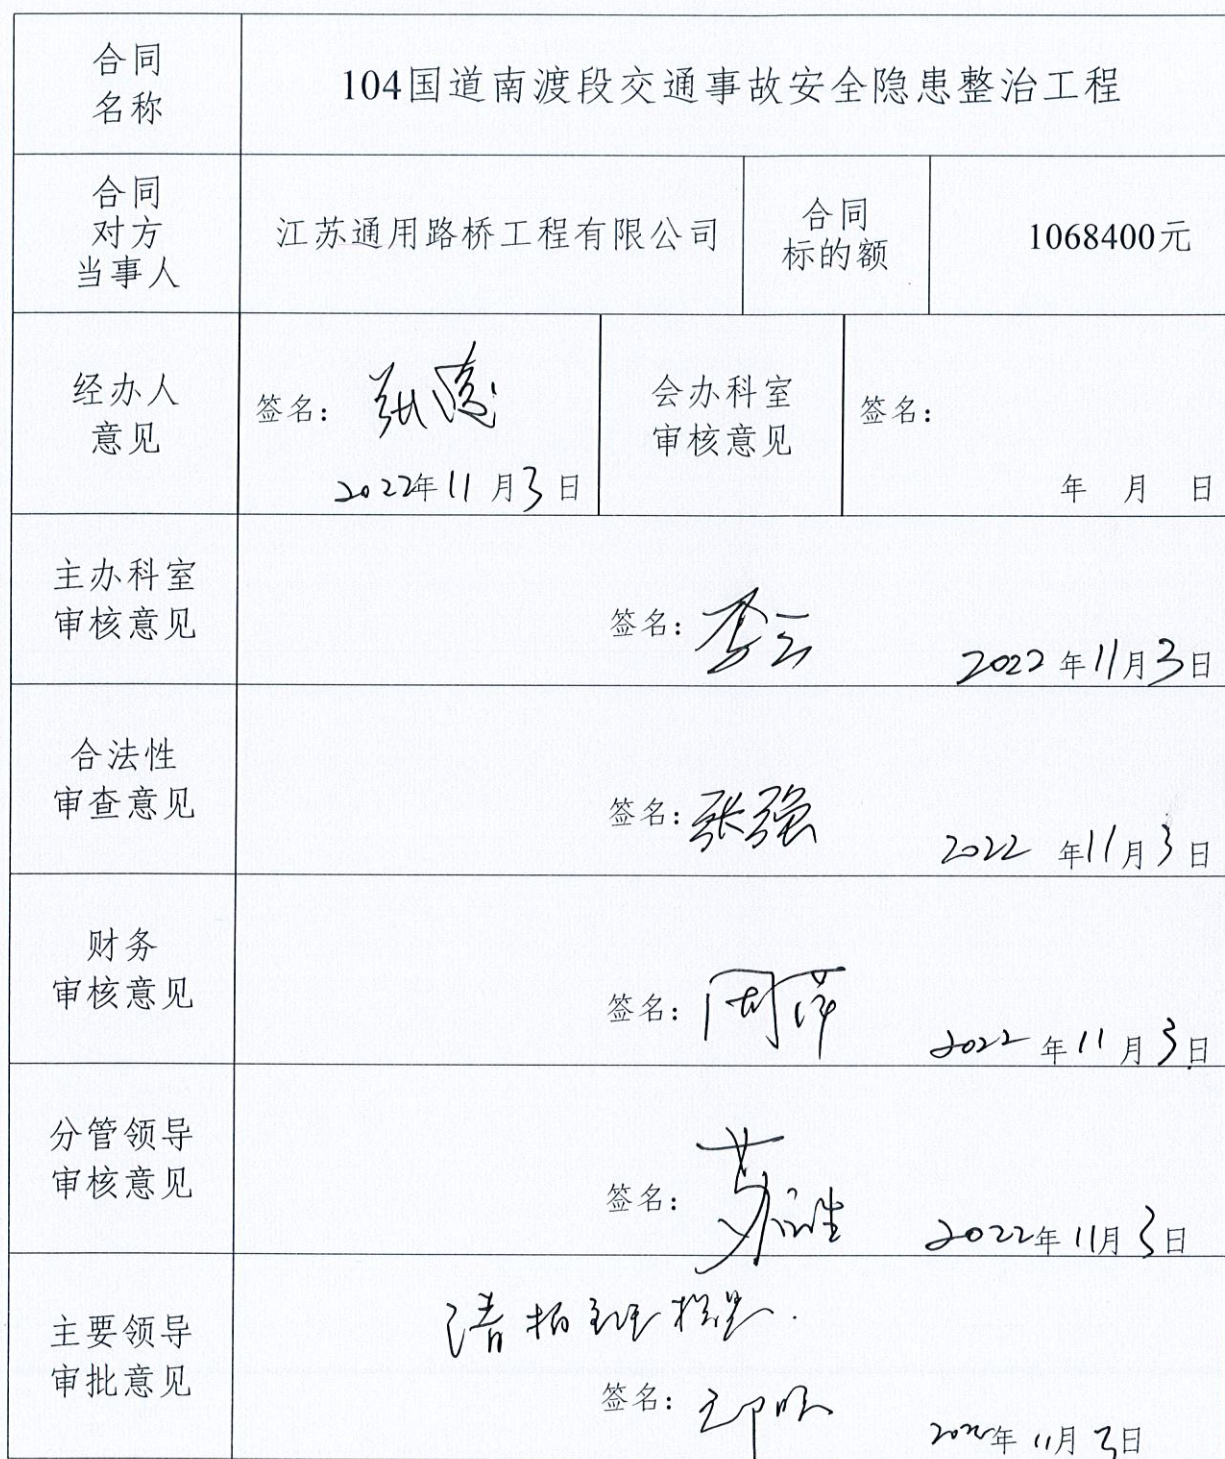 合同
名称
104国道南渡段交通事故安全隐患整治工程
合同
对方
当事人
江苏通用路桥工程有限公司
合同
标的额
1068400元
经办人
意见
签名：
2022年11月3日
会办科室
审核意见
签名：
年 月 日
主办科室
审核意见
签名：李云
2022年11月3日
合法性
审查意见
签名：张强
2022年11月3日
财务
审核意见
签名：周萍
2022年11月3日
分管领导
审核意见
签名：
2022年11月3日
主要领导
审批意见
请
签名：
2022年11月3日